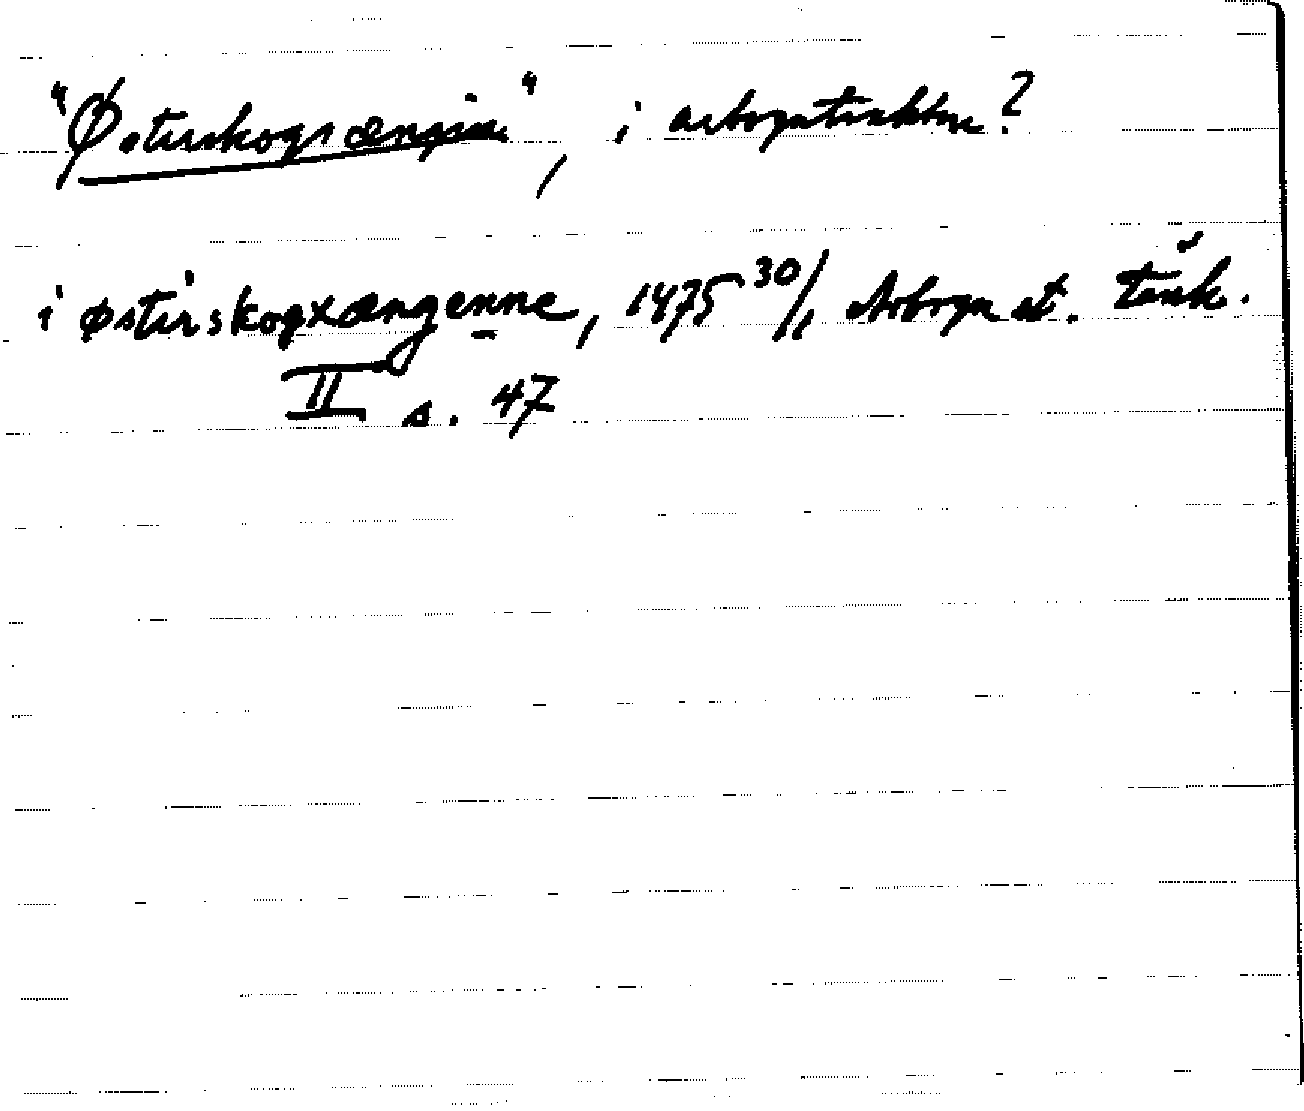 "Østerskogsængen", i arbogatrakten?
i østerskogxængenne, 1475 30/1, Arboga st. tänk.
II s. 47